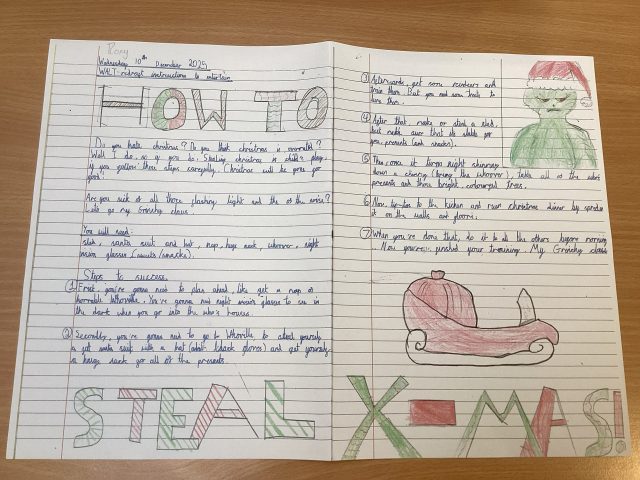 Rory
Wednesday 10th December 2025
WALT: redraft instructions to entertain
HOW TO
Do you hate christmas? Do you think christmas is overrated?
Well I do, so if you do. Stealing christmas is child's play,
if you follow these steps carefully. Christmas will be gone for
good!
Are you sick of all those flashing light and the of the noise?
Lets go my Grinchy claus.
You will need:
sleh, santa suit and hat, map, huge sack, whoover, night
vision glasses (sweets/snacks).
Steps to success.
① First, you're gonna need to plan ahead, like get a map of
horrable Whoville. You're gonna need night vision glasses to see in
the dark when you go into the who's houses.
② Secondly, you're gonna need to go to Whoville to a
a fat santa suit with a hat (black gloves) and get yourself
a huge sack for all of the presents.
③ Afterwards, get some reindeers and
train them. But you need some treats to
lure them.
④ After that, make or steal a sled,
but make sure that its stable for
you, presents (and snacks).
⑤ Then once it turns night
down a chimney (bring the whoover), take all of the who's
presents and those bright, coloured trees.
⑥ Now, tip-toe to the kichen and ruin christmas dinner by spreding
it on the walls and floors.
⑦ When you're done that, do it to all the others before morning
Now you've finished your training. My Grinchy
STEAL X-MAS!